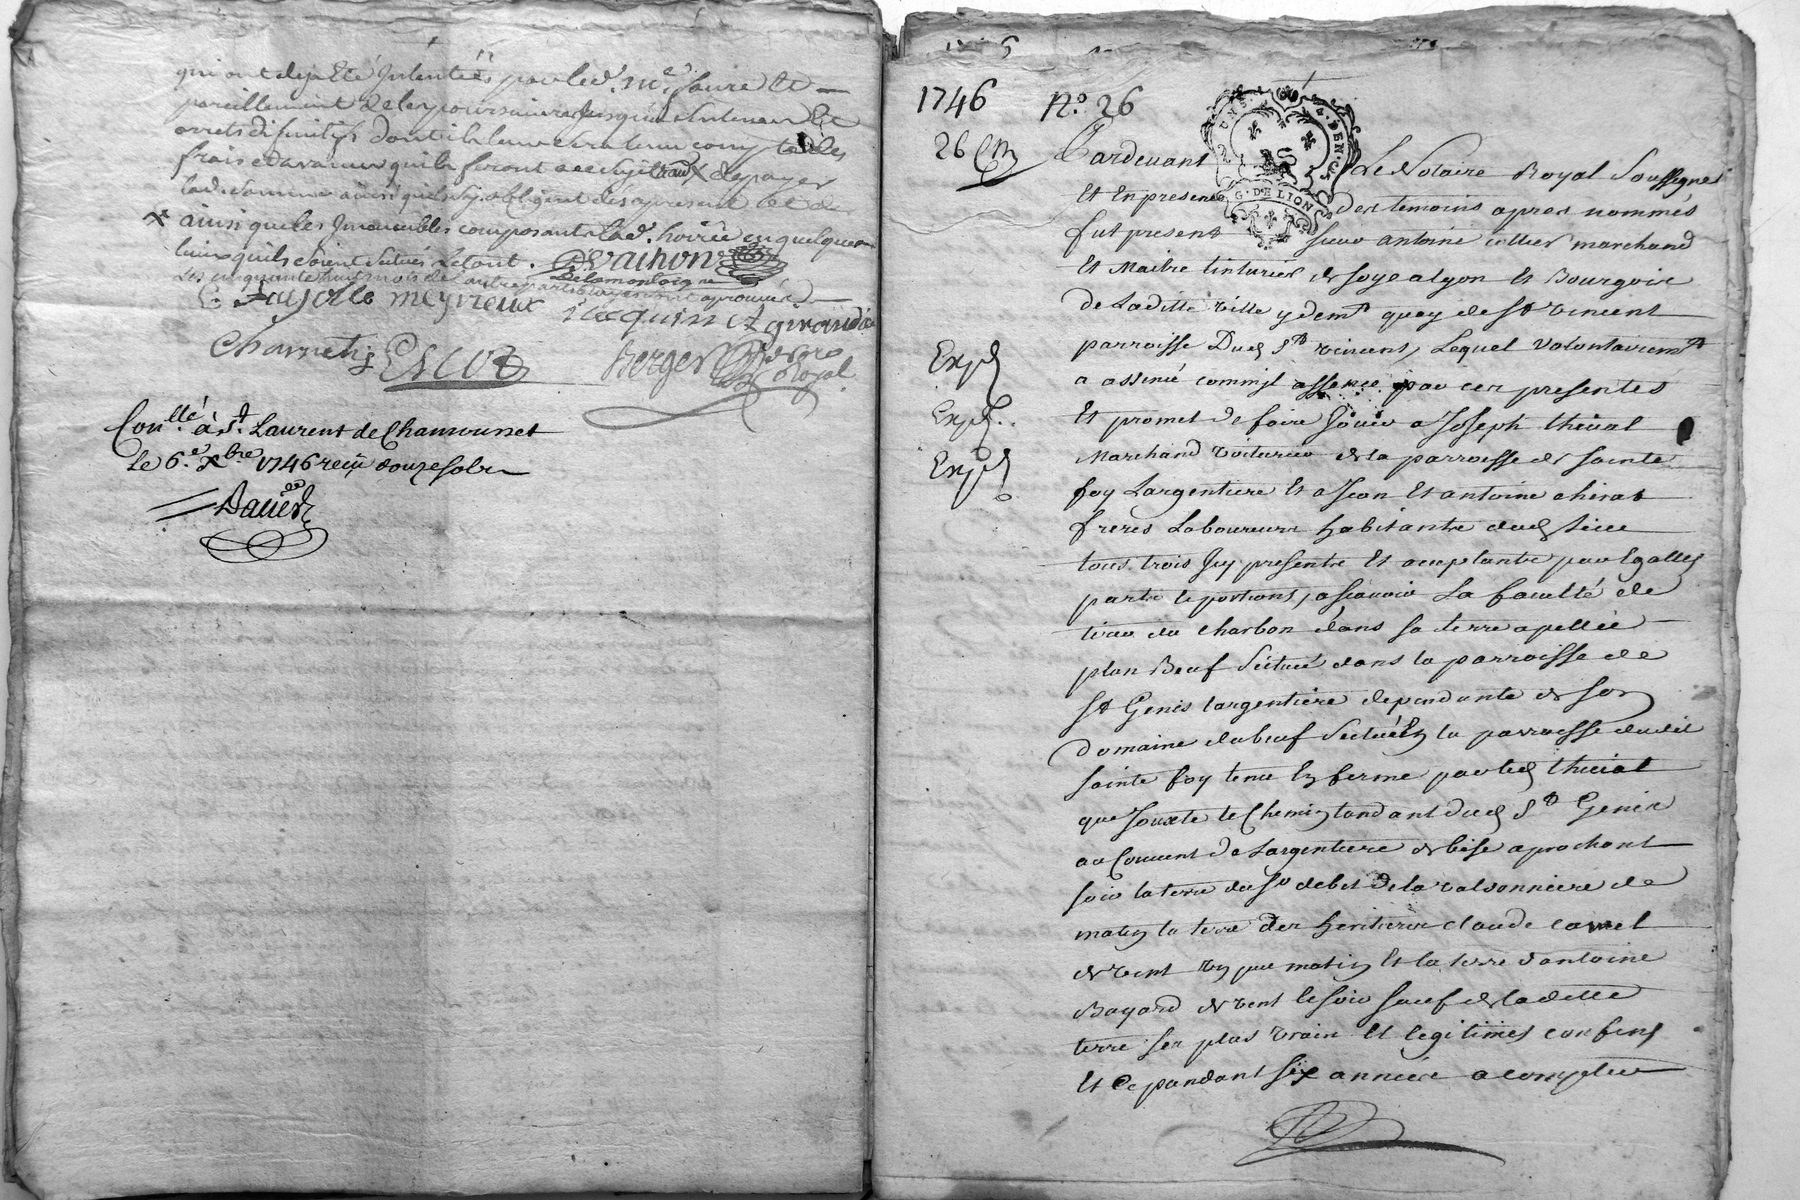 qui ont deja Eté Intentées par led. Me. faure Et
pareillement de les poursuivre jusqu'a Sentence Et
arrets difinitifs dont il leur tiendra compte des
frais et avances qu'ils feront
lad. somme ainsi qu'ils s'y obligent dés apresent et de
x ainsi que les Immeubles composants lad. hoirie en quelques
lieux qu'ils soient situés Letout. DeVaihon
Les cinquante huit mots de l'autre part approuvés
Delamontagne
C. Fayolle meyrieux Jacquin Et giraud
Charretis Escot Berger No.re Royal
Con.llé à S.t Laurent de Chamousset
Le 6.e Xbre 1746 reçu douze sols
David
1746 N.o 26
26
Pardevant Le Notaire Royal Soussigné
Et En presence des temoins apres nommés
fut present sieur antoine marchand
Et Maitre tinturier de soye a lyon Et Bourgois
De Laditte ville y demt quay de St vincent
parroisse Dud St vincent, Lequel volontairemt
a assencé comm'il assence par ces presentes
Et promet de faire Jouir a Joseph thivial
Marchand voiturier de la parroisse de sainte
foy Largentiere Et a Jean Et antoine chirat
freres Laboureurs habitants dud lieu
tous trois Icy presents Et acceptants par Egalles
parts Et portions, a sçavoir La faculté de
tirer du charbon dans sa terre apellée
plan Beuf Scituée dans la parroisse de
St Genis Largentiere dependante de son
domaine du beuf Scitué En la parroisse dudit
sainte foy tenu En ferme par led thivial
que Jouxte le Chemin tendant dud St Genis
au Couvent de Largentiere de bise aprochant
soir la terre du Sr debes de la valsonniere de
matin la terre des heritiers claude carret
de vent un peu matin Et la terre d'antoine
Bayard de vent le soir sauf de laditte
terre ses plus vrais Et legitimes confins
Et Ce pandant six années a compter
Expd
Expd.
Expd
G. DE LION